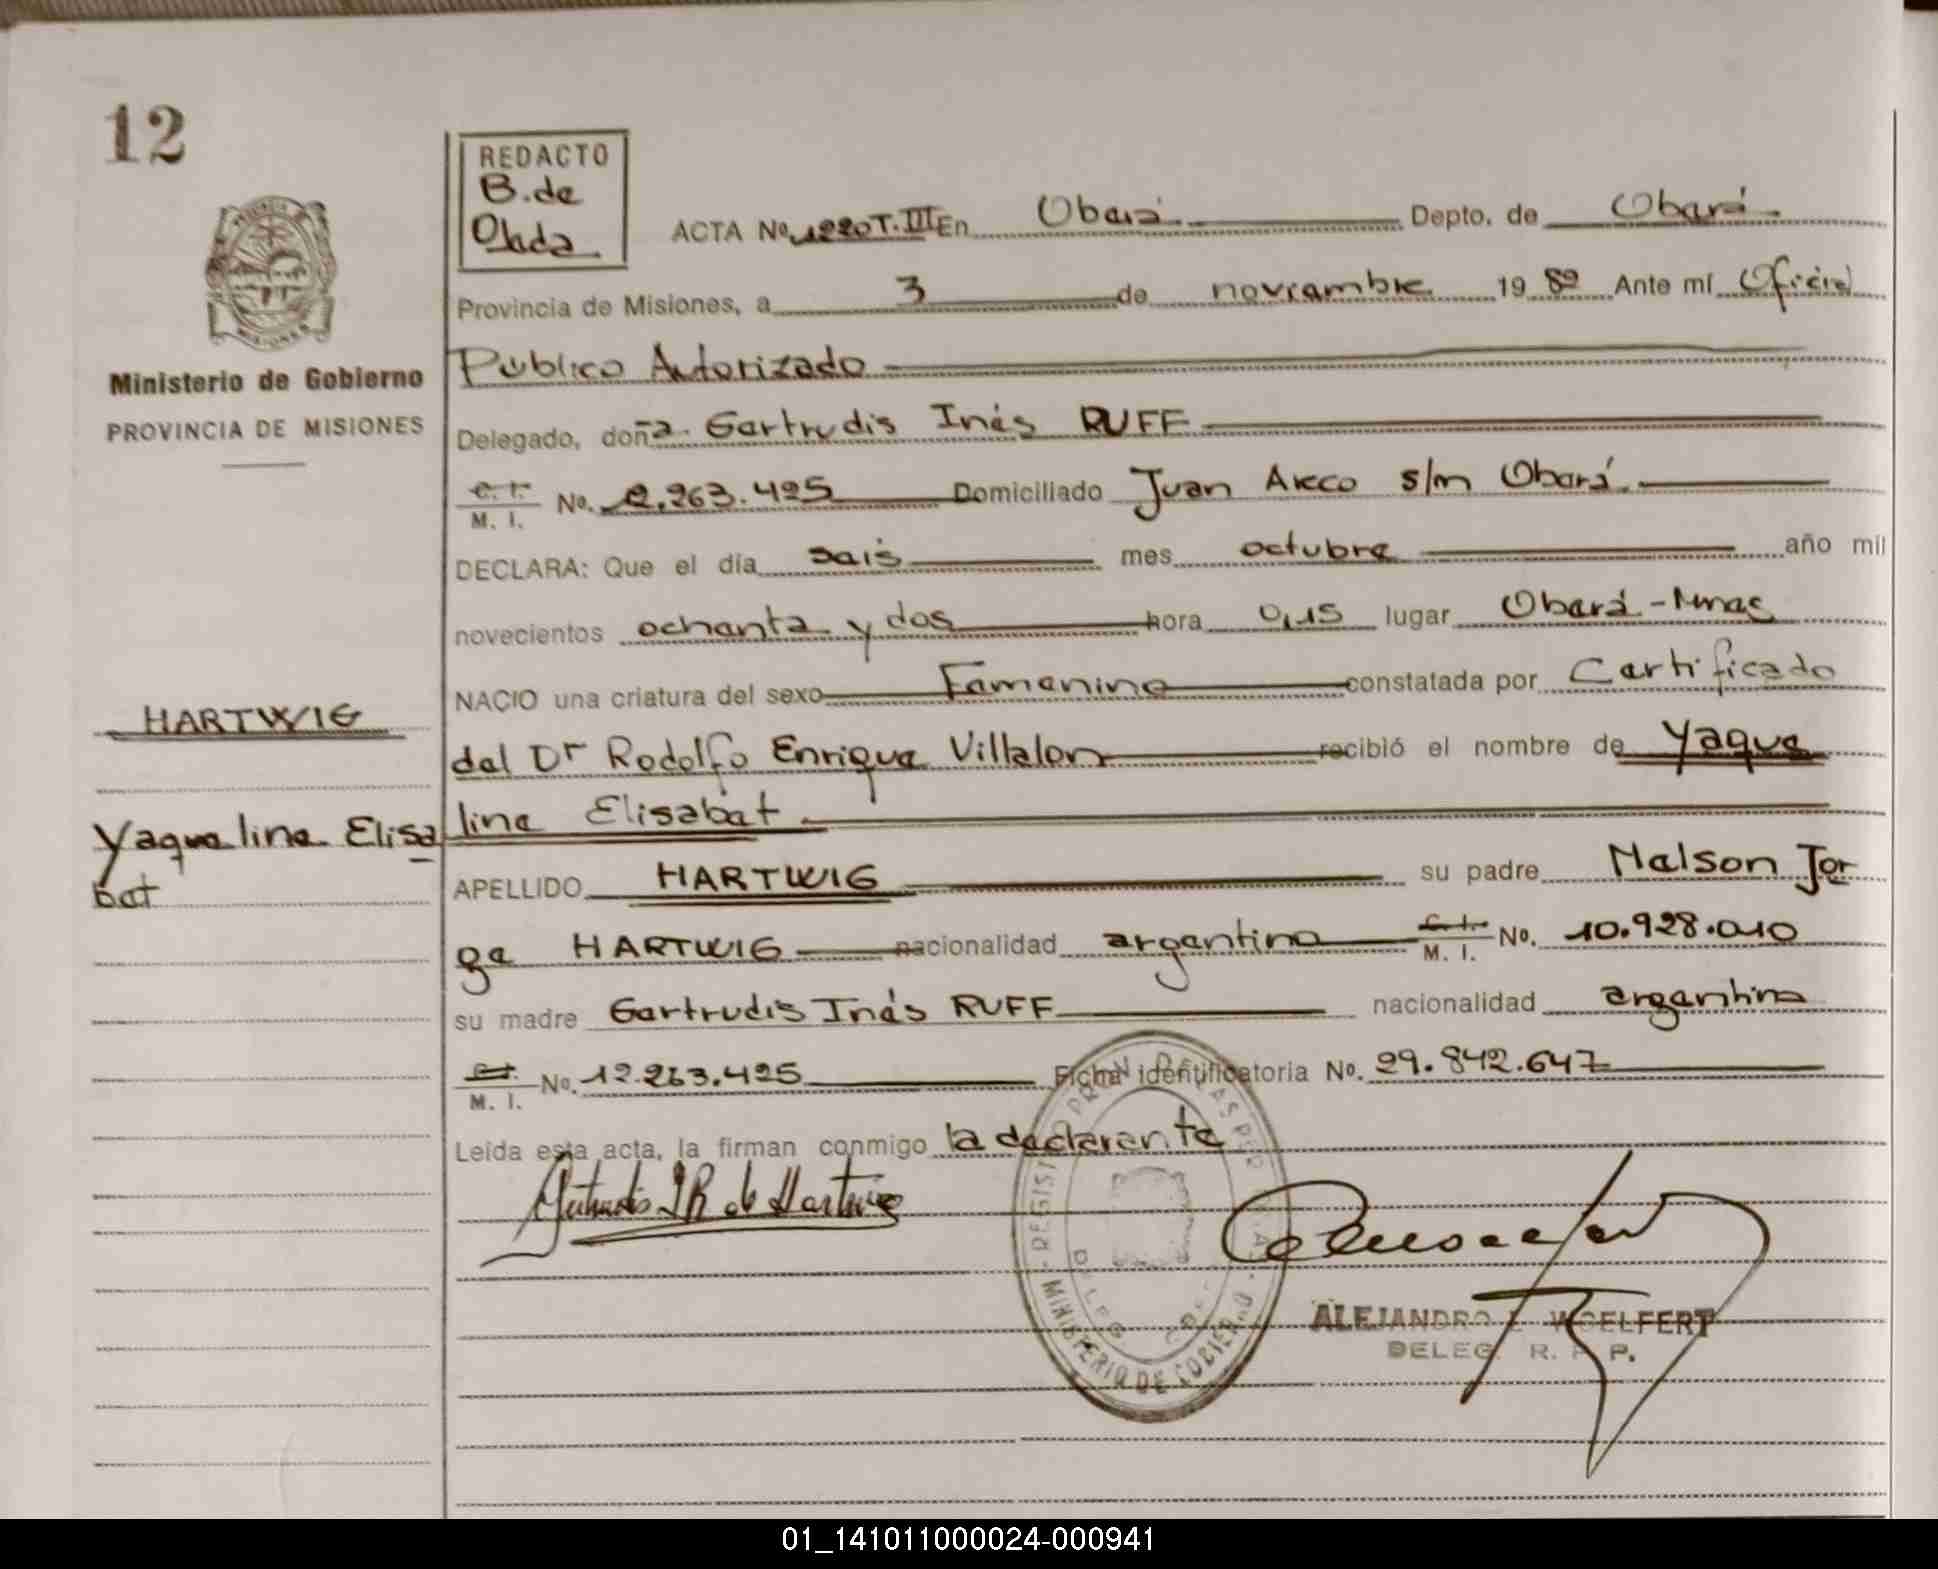 12
REDACTO
B. de
Olada
ACTA No. 1220 T. III En Oberá Depto. de Oberá
Provincia de Misiones, a 3 de noviembre 19 82 Ante mí Oficial
Público Autorizado
Ministerio de Gobierno
PROVINCIA DE MISIONES
Delegado, doña Gertrudis Inés RUFF
C. I.
M. I. No. 2.263.425 Domiciliado Juan Arco s/m Oberá
DECLARA: Que el día seis mes octubre año mil
novecientos ochenta y dos hora 0,15 lugar Oberá - Mnes
NACIO una criatura del sexo Femenino constatada por Certificado
del Dr Rodolfo Enrique Villalon recibió el nombre de Yaque
line Elisabet
HARTWIG
Yaqueline Elisa
bet
APELLIDO HARTWIG su padre Nelson Jor
ge HARTWIG nacionalidad argentina C. I.
M. I. No. 10.928.010
su madre Gertrudis Inés RUFF nacionalidad argentina
M. I. No. 12.263.425 Ficha identificatoria No. 29.842.647
Leída esta acta, la firman conmigo la declarante
Gertrudis I R de Hartwig
MINISTERIO DE GOBIERNO
ALEJANDRO WOELFERT
DELEG. R. P. P.
01_141011000024-000941